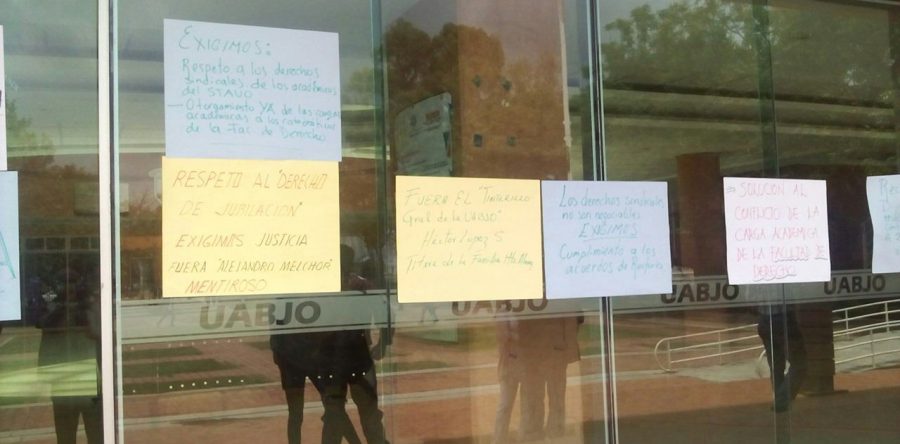 EXIGIMOS:
Respeto a los derechos
sindicales de los académicos
del STAUO
— Otorgamiento YA de las cargas
académicas a los
de la Fac de Derecho
RESPETO AL "DERECHO
DE JUBILACION"
EXIGIMOS JUSTICIA
FUERA "ALEJANDRO MELCHOR"
MENTIROSO
FUERA EL "TINTERILLO
Gral de la UABJO"
Héctor López S
Titere de la Familia
Los derechos sindicales
no son negociables
EXIGIMOS
Cumplimiento a los
acuerdos de
= SOLUCION AL
CONFLICTO DE LA
CARGA ACADEMICA
DE LA FACULTAD DE
DERECHO
UABJO
UABJO
UABJO
UABJO